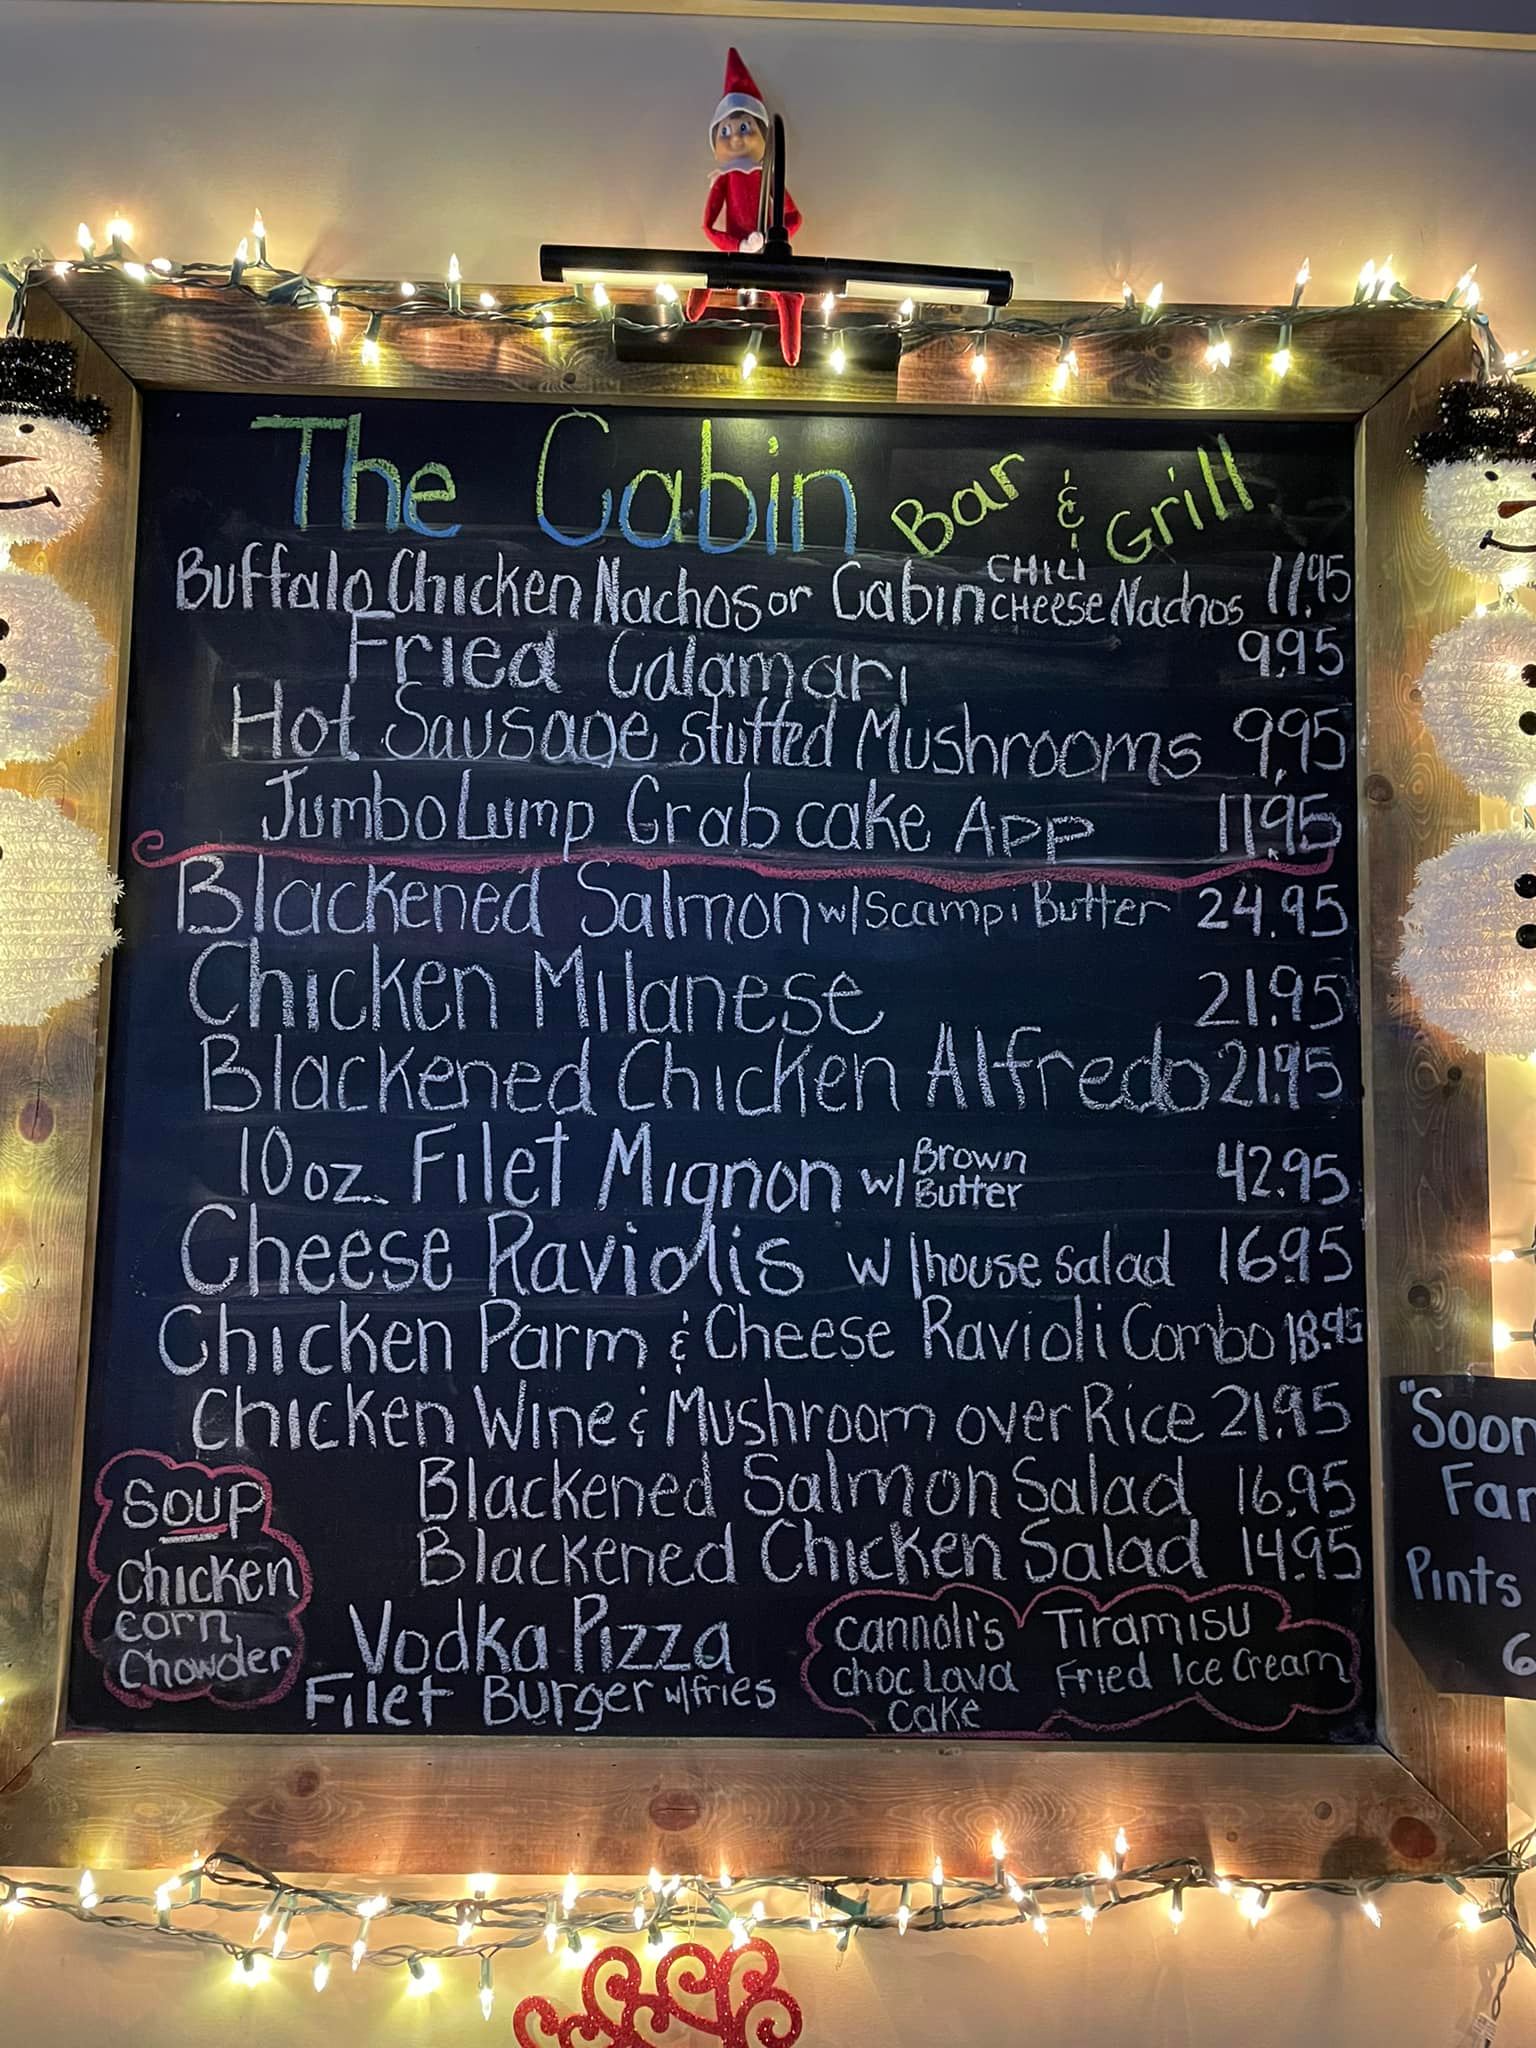 The Cabin Bar & Grill
Buffalo Chicken Nachos or Cabin CHILI CHEESE Nachos 11.95
Fried Calamari 9.95
Hot Sausage Stuffed Mushrooms 9.95
Jumbo Lump Crab cake App 11.95
Blackened Salmon w/ Scampi Butter 24.95
Chicken Milanese 21.95
Blackened Chicken Alfredo 21.95
10 oz. Filet Mignon w/ Brown Butter 42.95
Cheese Raviolis w/ house salad 16.95
Chicken Parm & Cheese Ravioli Combo 18.95
Chicken Wine & Mushroom over Rice 21.95
Blackened Salmon Salad 16.95
Blackened Chicken Salad 14.95
Soup
Chicken
Corn
Chowder
Vodka Pizza
Filet Burger w/fries
Cannoli's Tiramisu
Choc Lava Fried Ice Cream
Cake
"Soon
Far
Pints
6